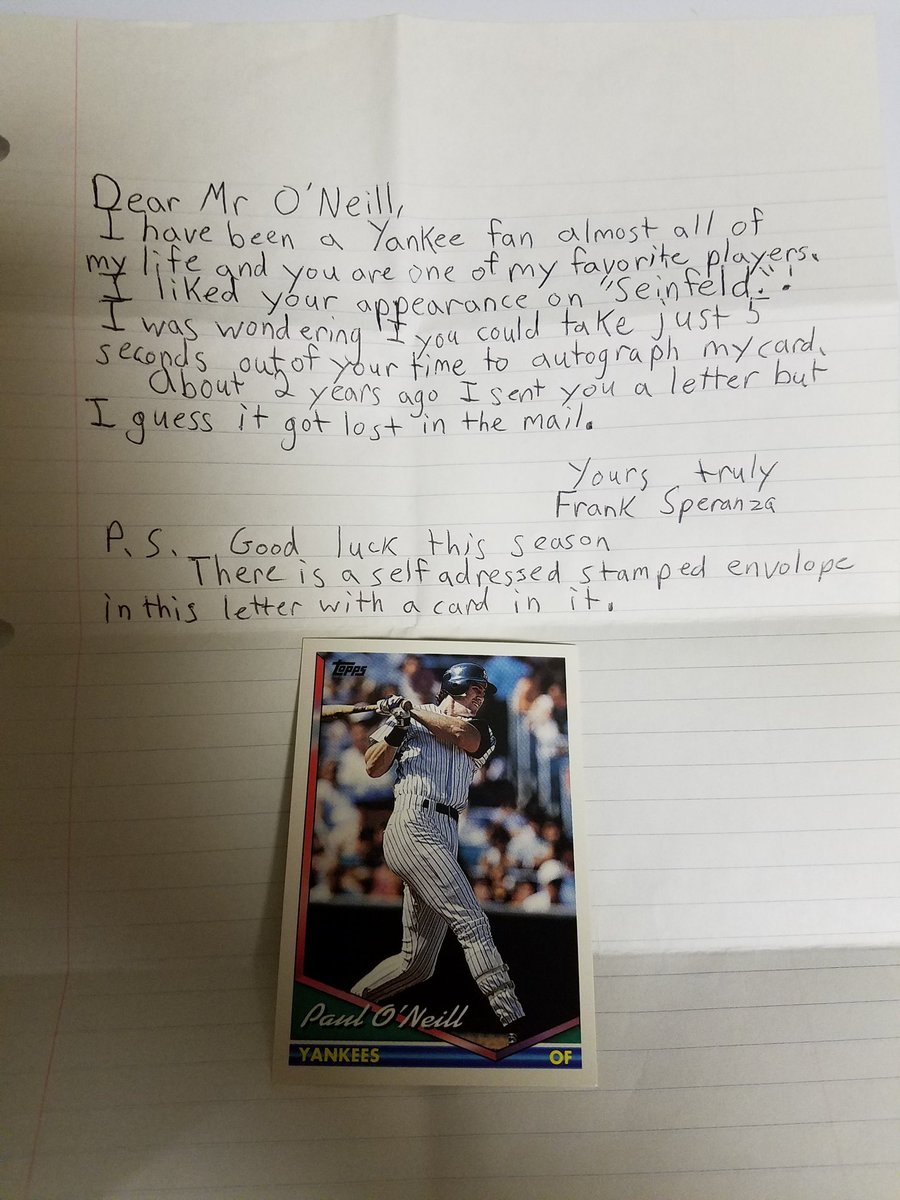 Dear Mr O'Neill,
I have been a Yankee fan almost all of
my life and you are one of my favorite players.
I liked your appearance on "Seinfeld."!
I was wondering I you could take just 5
seconds out of your time to autograph my card.
About 2 years ago I sent you a letter but
I guess it got lost in the mail.
Yours truly
Frank Speranza
P.S. Good luck this season
There is a self adressed stamped envolope
in this letter with a card in it.
Topps
Paul O'Neill
YANKEES OF